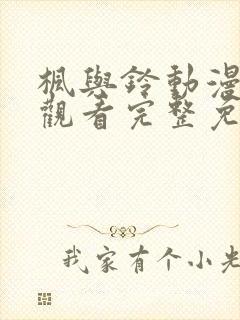 楓與鈴動漫
觀看完整免
我家有个小先